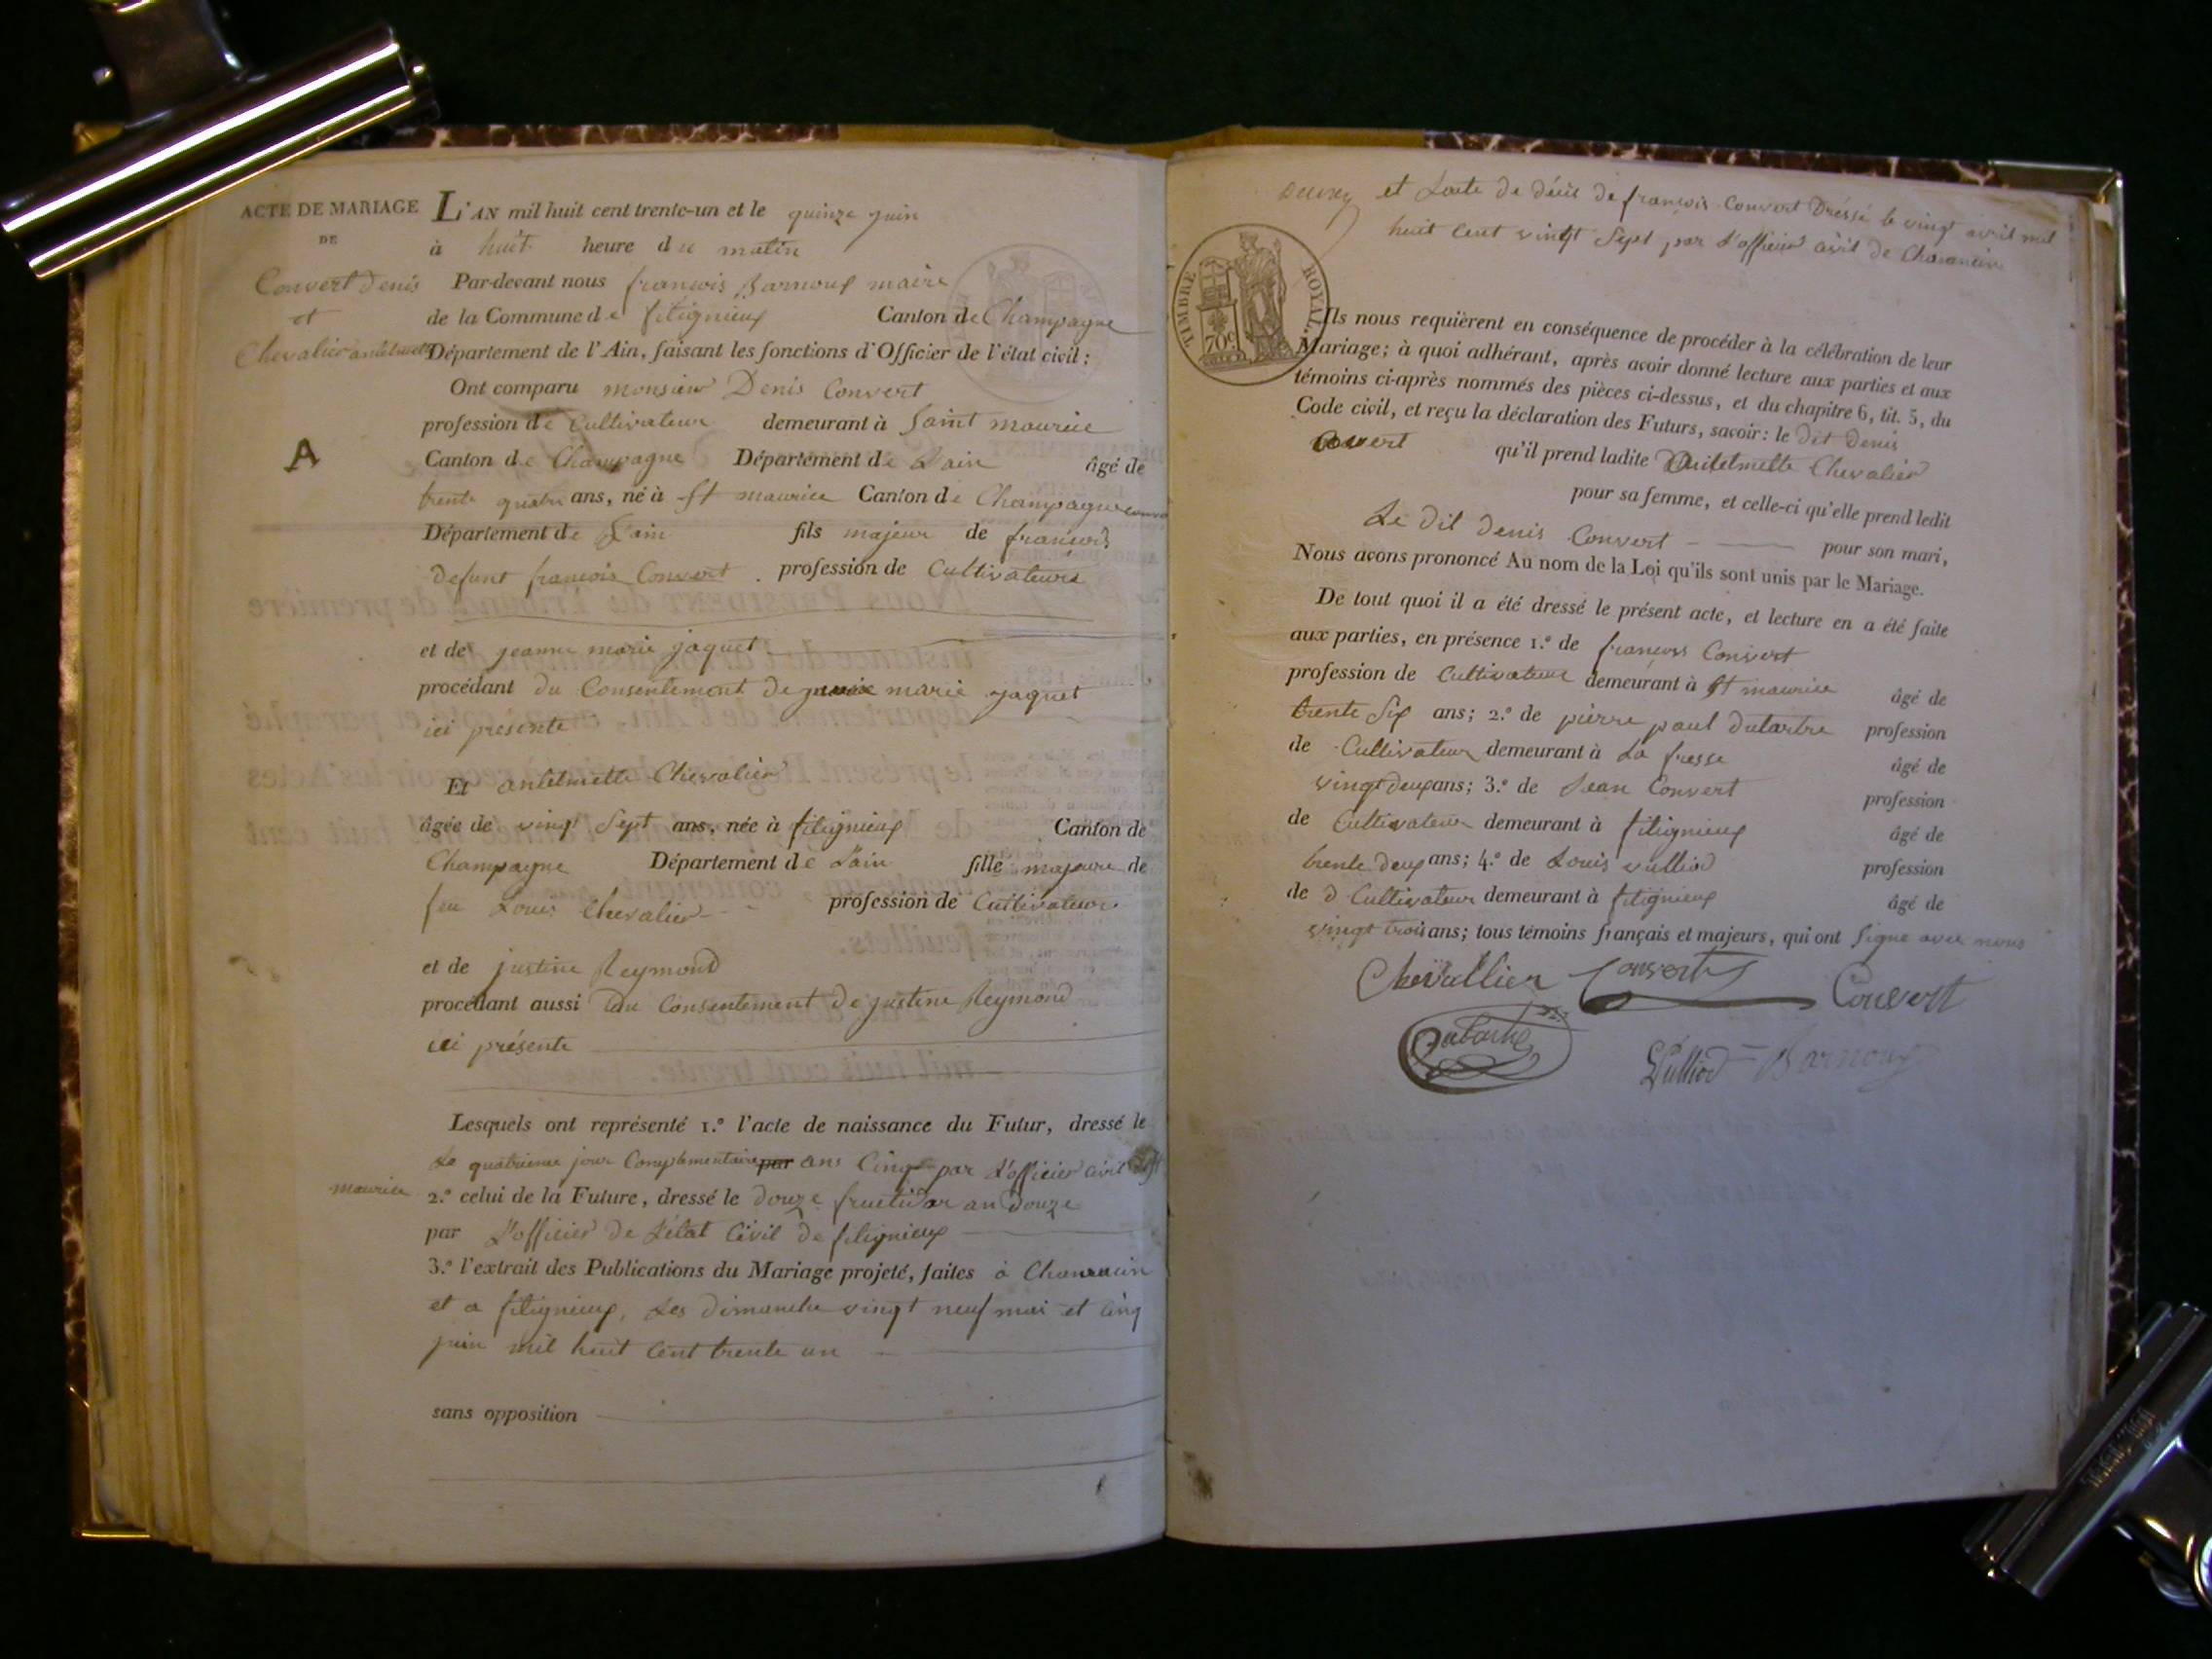 ACTE DE MARIAGE
DE
Convert Denis
et
Chevalier antelmette
A
L'AN mil huit cent trente-un et le quinze juin
à huit heure du matin
Par-devant nous françois Barnoux maire
de la Commune de fitignieux Canton de Champagne
Département de l'Ain, faisant les fonctions d'Officier de l'état civil :
Ont comparu monsieur Denis Convert
profession de Cultivateur demeurant à Saint maurice
Canton de Champagne Département de L'ain âgé de
trente quatre ans, né à St maurice Canton de Champagne
Département de L'ain fils majeur de françois
defunt françois Convert profession de Cultivateurs
et de jeanne marie jaquet
procédant du Consentement de marie jaquet
ici presente
Et antelmette Chevalier
âgée de vingt Sept ans, née à fitignieux Canton de
Champagne Département de L'ain fille majeure de
feu Louis Chevalier profession de Cultivateur
et de justine Reymond
procédant aussi du Consentement de justine Reymond
ici présente
Lesquels ont représenté 1.º l'acte de naissance du Futur, dressé le
Le quatrieme jour Complementaire par ans Cinq par L'officier civil de St
maurice
2.º celui de la Future, dressé le douze fructidor an douze
par L'officier de L'état Civil de fitignieux
3.º l'extrait des Publications du Mariage projeté, faites à Chavancin
et a fitignieux, Les dimanche vingt neuf mai et cinq
juin mil huit Cent trente un
sans opposition
et Lacte de décès de françois Convert Dréssé le vingt avril mil
huit Cent vingt Sept par L'officier civil de Chavancin
TIMBRE ROYAL.
70c
Ils nous requièrent en conséquence de procéder à la célébration de leur
Mariage; à quoi adhérant, après avoir donné lecture aux parties et aux
témoins ci-après nommés des pièces ci-dessus, et du chapitre 6, tit. 5, du
Code civil, et reçu la déclaration des Futurs, savoir : le dit denis
Convert qu'il prend ladite antelmette Chevalier
pour sa femme, et celle-ci qu'elle prend ledit
Le dit denis Convert pour son mari,
Nous avons prononcé Au nom de la Loi qu'ils sont unis par le Mariage.
De tout quoi il a été dressé le présent acte, et lecture en a été faite
aux parties, en présence 1.º de françois Convert
profession de Cultivateur demeurant à St maurice âgé de
trente Six ans; 2.º de pierre paul dutartre profession
de Cultivateur demeurant à La fresse âgé de
vingt deux ans; 3.º de Jean Convert profession
de Cultivateur demeurant à fitignieux âgé de
trente deux ans; 4.º de Louis vulliod profession
de d Cultivateur demeurant à fitignieux âgé de
vingt trois ans; tous témoins français et majeurs, qui ont Signe avec nous
Chevallier Convert Convert
Vulliod Barnoux